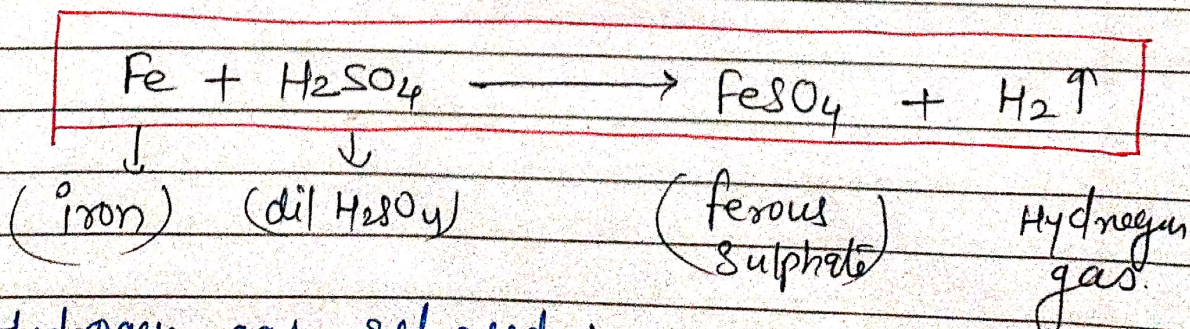 Fe + H2SO4 ⟶ FeSO4 + H2↑
(iron) (dil H2SO4) (ferous Sulphate) Hydrogen gas.
Hydrogen gas